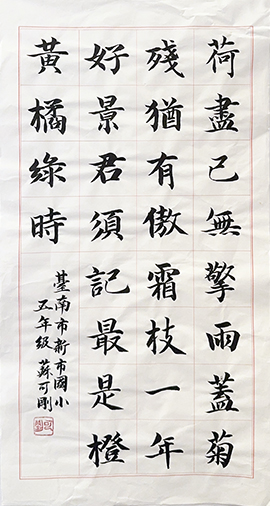 荷盡已無擎雨蓋菊
殘猶有傲霜枝一年
好景君須記最是橙
黃橘綠時
臺南市新市國小
五年級蘇可剛